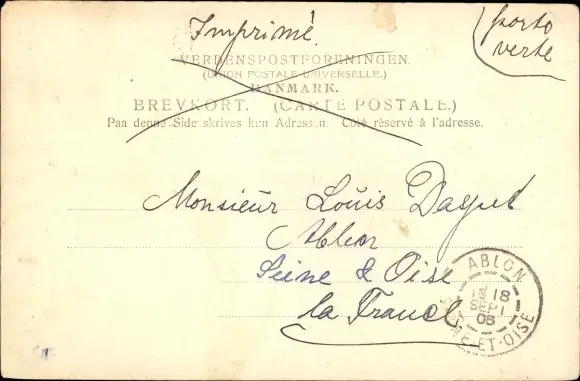 Imprimé.
porto
verte
VERDENSPOSTFORENINGEN.
(UNION POSTALE UNIVERSELLE.)
DANMARK.
BREVKORT. (CARTE POSTALE.)
Paa denne Side skrives kun Adressen. Côté réservé à l'adresse.
Monsieur Louis
Ablon
Seine & Oise
la France
ABLON
18
SEPT
06
SEINE-ET-OISE